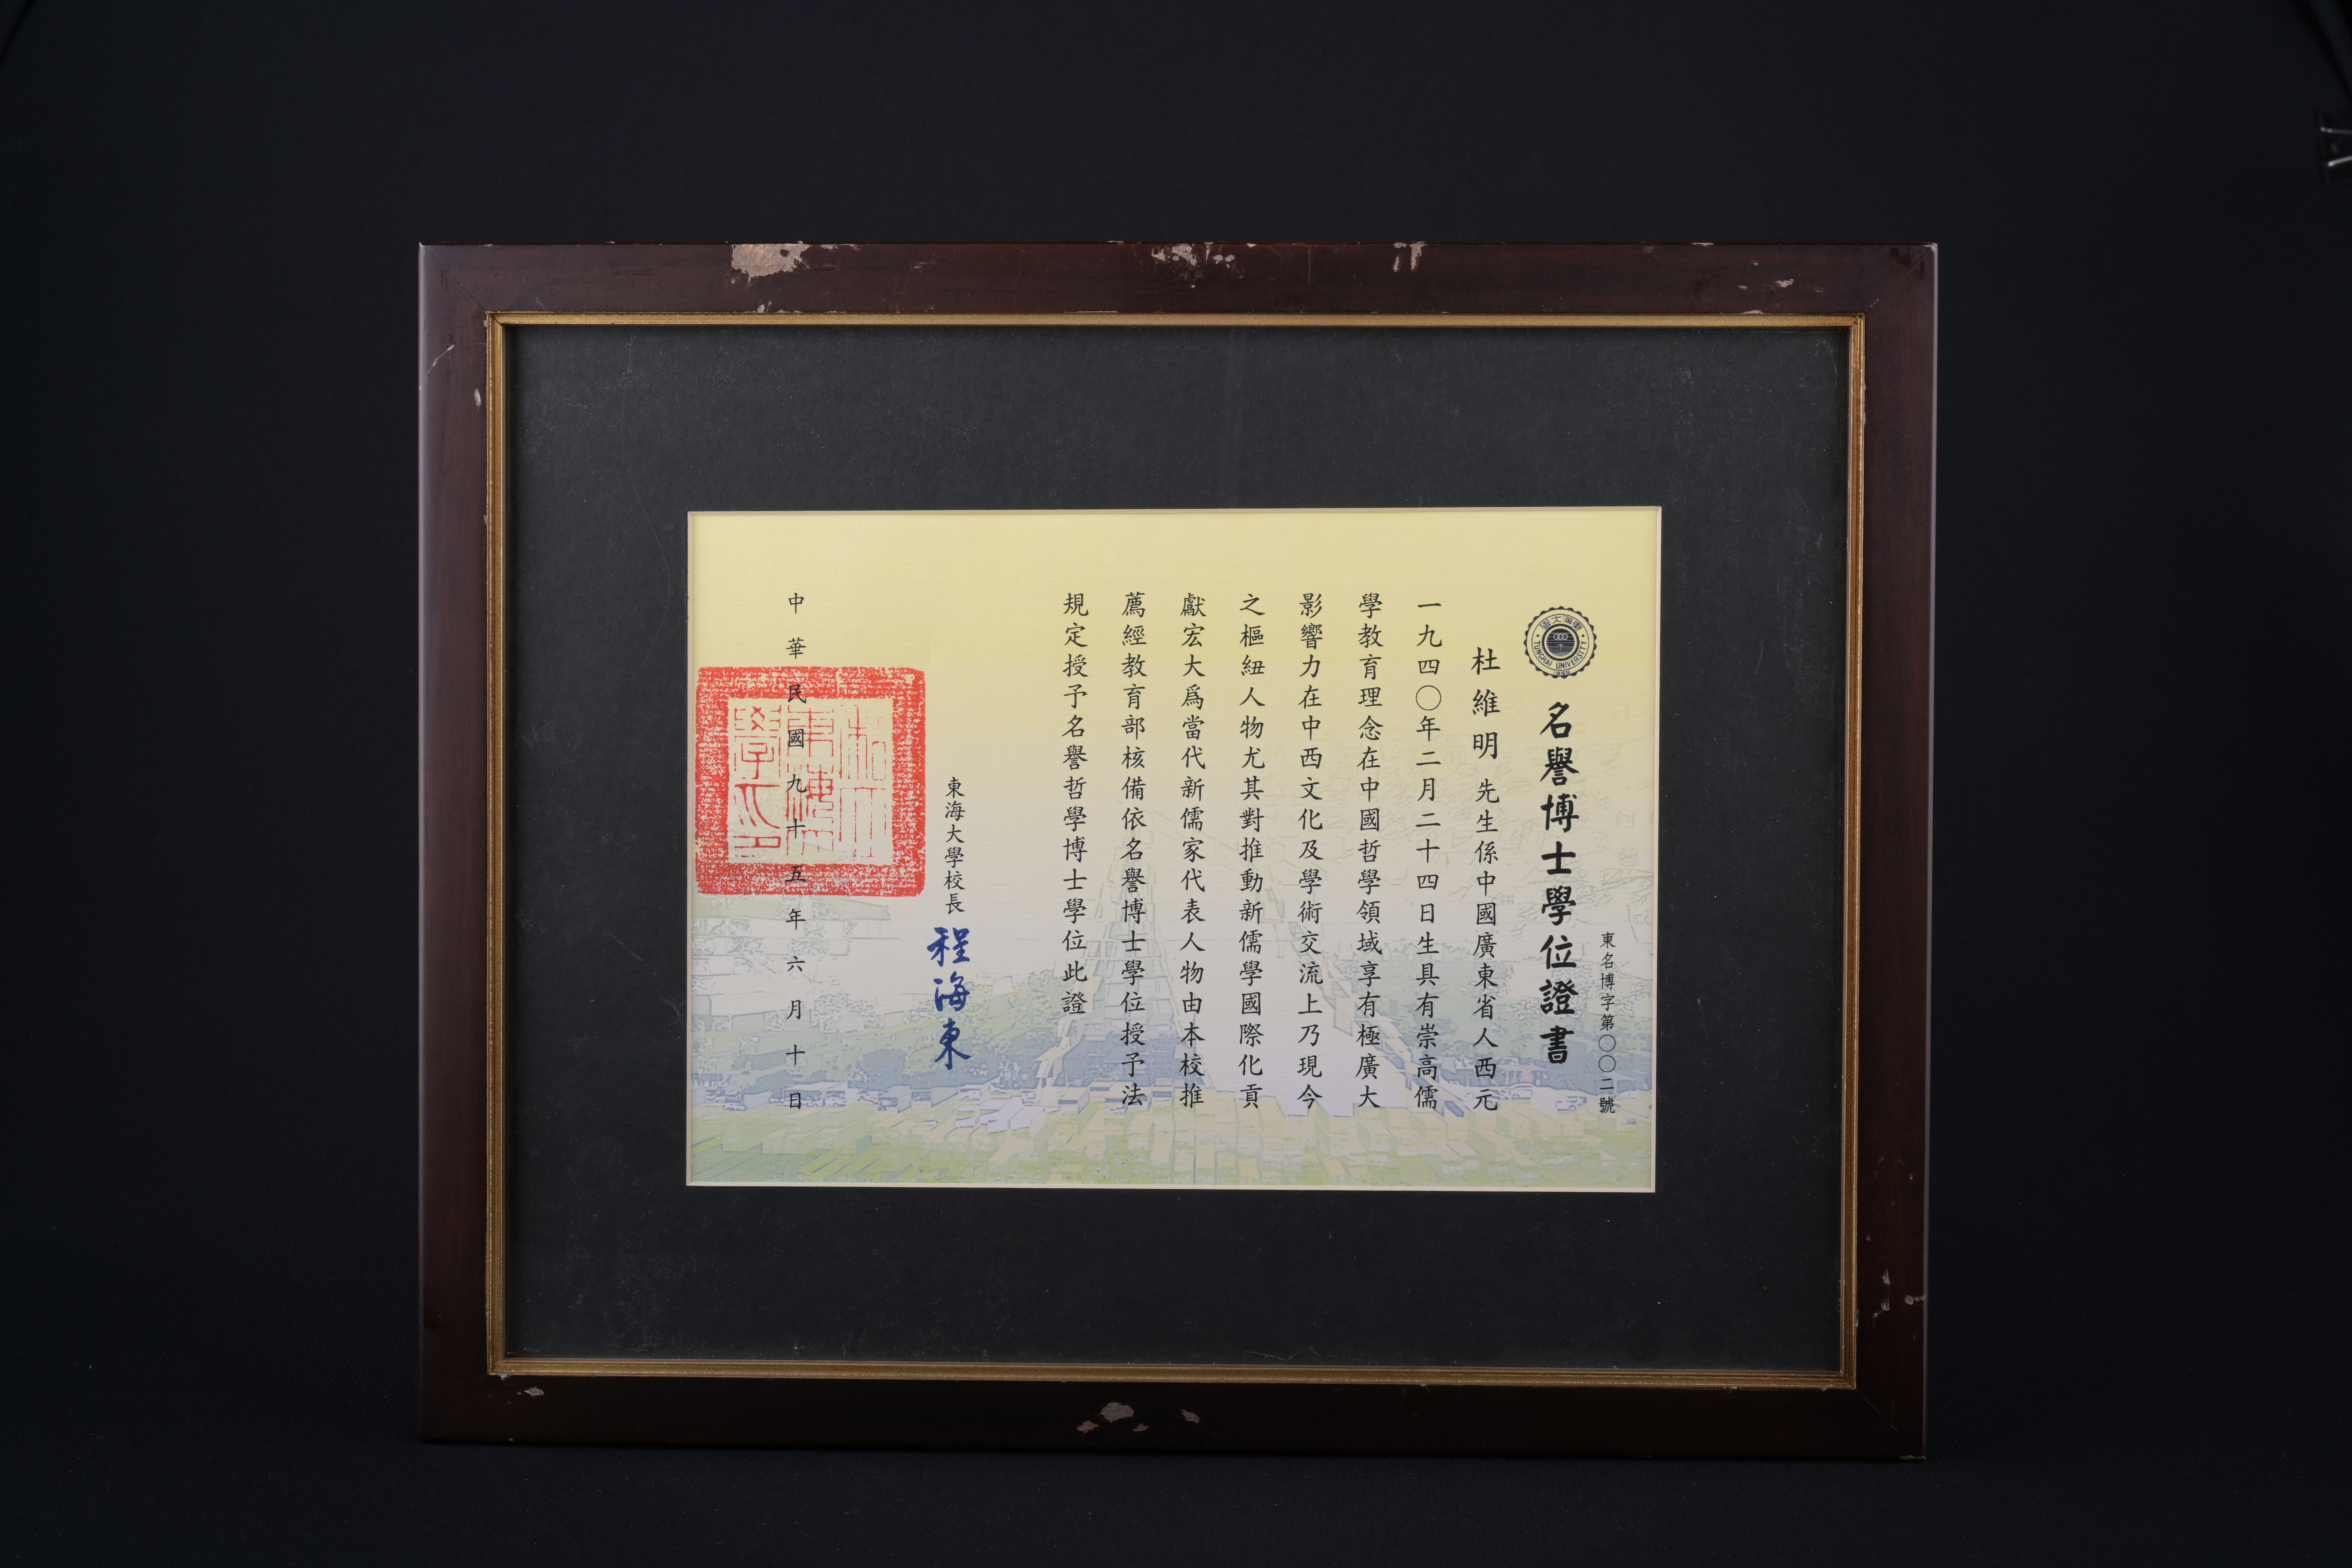 東名博字第〇〇二號
東海大學
TUNGHAI UNIVERSITY
名譽博士學位證書
杜維明先生係中國廣東省人西元
一九四〇年二月二十四日生具有崇高儒
學教育理念在中國哲學領域享有極廣大
影響力在中西文化及學術交流上乃現今
之樞紐人物尤其對推動新儒學國際化貢
獻宏大爲當代新儒家代表人物由本校推
薦經教育部核備依名譽博士學位授予法
規定授予名譽哲學博士學位此證
東海大學校長程海東
中華民國九十五年六月十日
私立
東海大
學之印